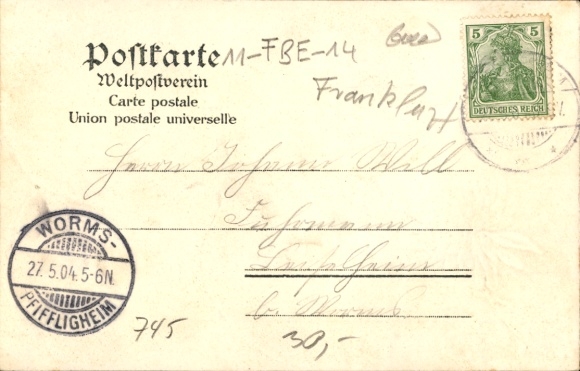 Postkarte 11-FBE-14
Weltpostverein
Carte postale
Union postale universelle
Frankfurt
5 5
DEUTSCHES REICH
Herrn Johann Will
Fuhrmann
Leiselheim
b. Worms
WORMS-
27.5.04.5-6N.
PFIFFLIGHEIM
745
30,-